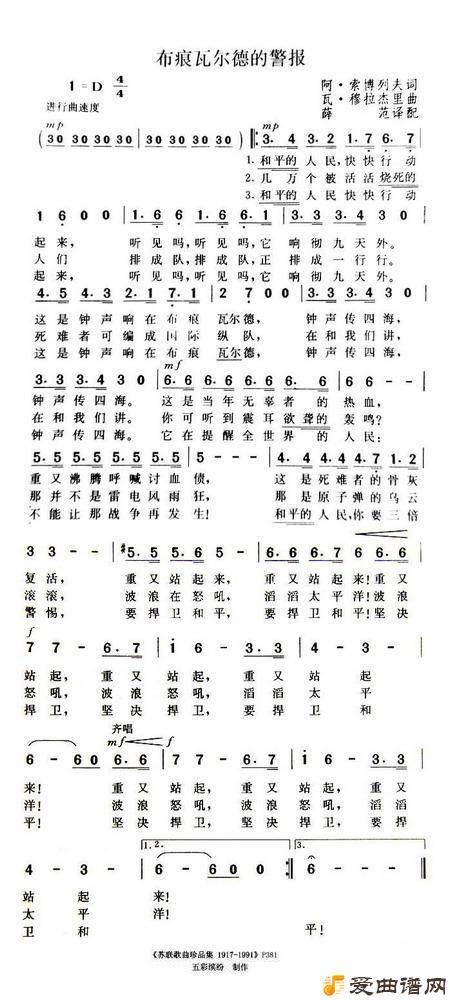 布痕瓦尔德的警报
1=D 4/4
阿·索博列夫词
瓦·穆拉杰里曲
薛 范译配
进行曲速度
mp mp
30 30 30 30 30 30 30 30 3. 4 3. 2 1. 7 6. 7
1.和平的 人民,快快行动
2.几万个 被活活烧死的
3.和平的 人民快快行动
1 6 0 0 1. 6 6 1. 6 6. 1 3. 3 3. 4 3 0
起来, 听见吗,听见吗,它 响彻九天外。
人们 排成队,排成队,正 排成一行行。
起来, 听见吗,听见吗,它 响彻九天外。
4. 5 4. 3 2. 1 7. 1 2 7 0 0 3. 3 3. 4 3 0
这是钟声响在布痕 瓦尔德, 钟声传四海,
死难者可编成国际 纵队, 在和我们讲,
这是钟声响在布痕 瓦尔德, 钟声传四海,
mf
3. 3 3. 4 3 0 6. 6 6. 6 6. 6 6. 6
钟声传四海。 这是当年无辜者的热血,
在和我们讲。 你可听到震耳欲聋的轰鸣?
钟声传四海。 它在提醒全世界的人民:
5. 5 5. 5 5. 5 5 4. 4 4. 4 4. 7 1. 2
重又沸腾呼喊讨血债, 这是死难者的骨灰
那并不是雷电风雨狂, 那是原子弹的乌云
不能让那战争再发生! 和平的人民,你要三倍
3 3 - - #5. 5 5. 6 5 - 6. 6 6. 7 6 6. 6
复活, 重又站起来, 重又站起来!重又
滚滚, 波浪在怒吼, 滔滔太平洋!波浪
警惕, 要捍卫和平, 要捍卫和平!坚决
f
7 7 - 6. 7 1 - 6 3. 3 4 - 3 -
站起, 重又站起, 重又站起
怒吼, 波浪怒吼, 滔滔太平
捍卫, 坚决捍卫, 要捍卫和
齐唱
mf f
6 - 6 0 6. 6 7 7 - 6. 7 1 - 6 3. 3
来! 重又站起, 重又站起, 重又
洋! 波浪怒吼, 波浪怒吼, 滔滔
平! 坚决捍卫, 坚决捍卫, 要捍
1.2. 3.
4 - 3 - 6 - 6 0 0 6 - 6 0
站起来!
太平洋!
卫和 平!
《苏联歌曲珍品集 1917-1991》P381
五彩缤纷 制作
爱曲谱网